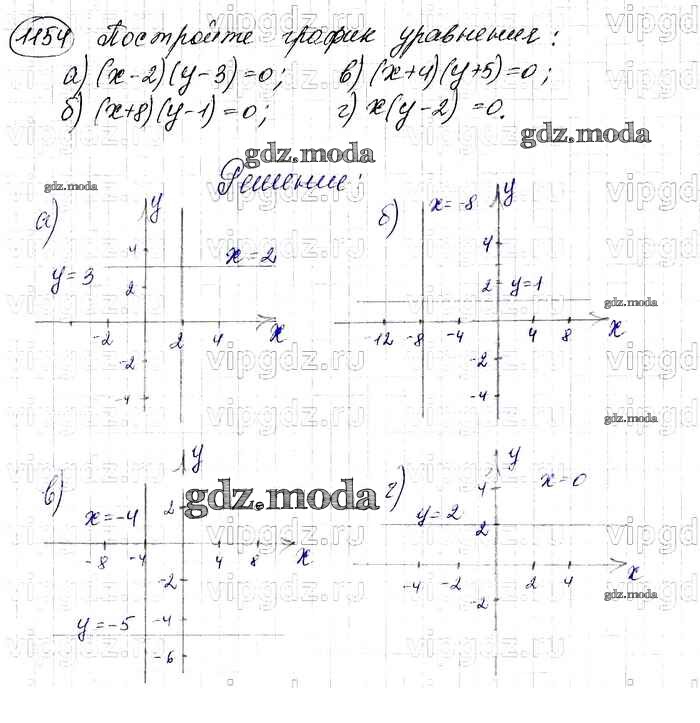 1154 Постройте график уравнения:
а) (x-2)(y-3)=0; в) (x+4)(y+5)=0;
б) (x+8)(y-1)=0; г) x(y-2)=0.
gdz.moda
gdz.moda
gdz.moda
Решение:
а) y
x=2
y=3
4
2
-2 2 4 x
-2
-4
б) x=-8 y
4
2 y=1
gdz.moda
-12 -8 -4 4 8 x
-2
-4
gdz.moda
в) y
2
x=-4
-8 -4 4 8 x
-2
y=-5 -4
-6
gdz.moda
г) y
4 x=0
y=2
2
-4 -2 2 4 x
-2
gdz.moda
vipgdz.ru